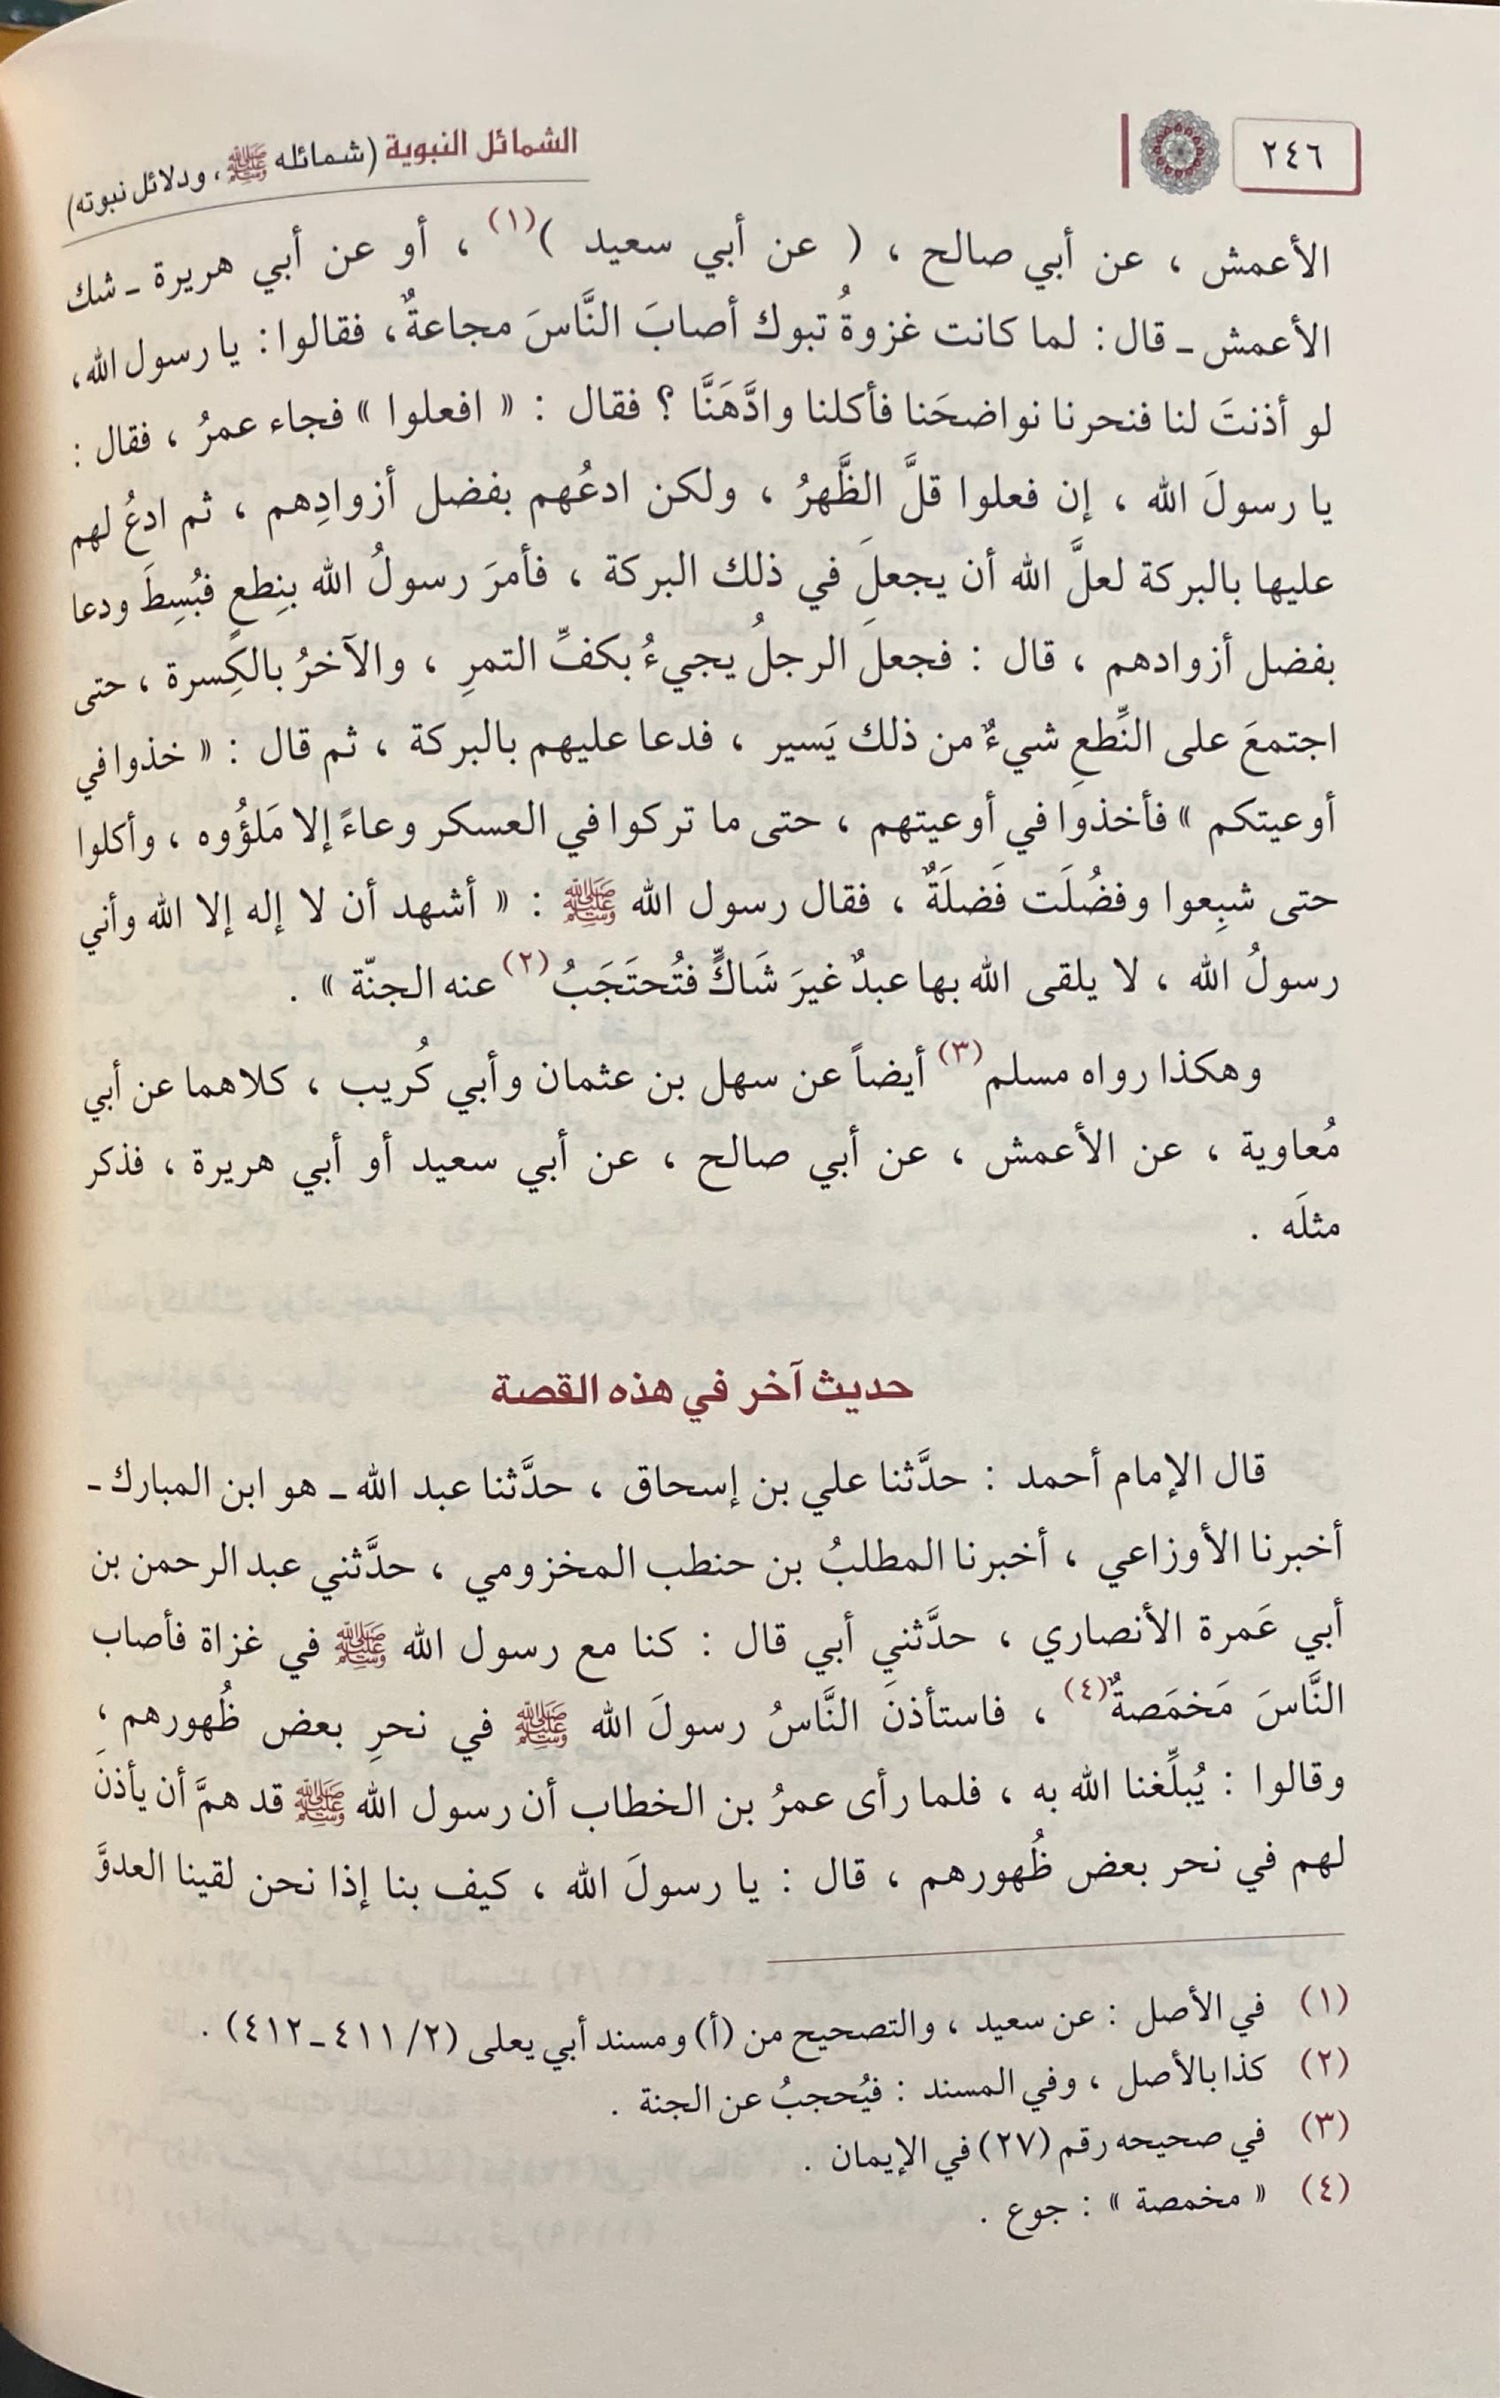 ٢٤٦
الشمائل النبوية (شمائله ﷺ، ودلائل نبوته)
الأعمش ، عن أبي صالح ، ( عن أبي سعيد )(١) ، أو عن أبي هريرة ـ شك
الأعمش ـ قال : لما كانت غزوةُ تبوك أصابَ النَّاسَ مجاعةٌ ، فقالوا : يا رسول الله ،
لو أذنتَ لنا فنحرنا نواضحَنا فأكلنا وادَّهَنَّا ؟ فقال : « افعلوا » فجاء عمرُ ، فقال :
يا رسولَ الله ، إن فعلوا قلَّ الظَّهرُ ، ولكن ادعُهم بفضل أزوادِهم ، ثم ادعُ لهم
عليها بالبركة لعلَّ الله أن يجعلَ في ذلك البركة ، فأمرَ رسولُ الله بنِطعٍ فبُسِطَ ودعا
بفضل أزوادهم ، قال : فجعل الرجلُ يجيءُ بكفِّ التمرِ ، والآخرُ بالكِسرة ، حتى
اجتمعَ على النِّطعِ شيءٌ من ذلك يَسير ، فدعا عليهم بالبركة ، ثم قال : « خذوا في
أوعيتكم » فأخذوا في أوعيتهم ، حتى ما تركوا في العسكر وعاءً إلا مَلؤُوه ، وأكلوا
حتى شبِعوا وفضُلَت فَضلَةٌ ، فقال رسول الله ﷺ : « أشهد أن لا إله إلا الله وأني
رسولُ الله ، لا يلقى الله بها عبدٌ غيرَ شَاكٍّ فتُحتَجَبُ(٢) عنه الجنّة » .
وهكذا رواه مسلم(٣) أيضاً عن سهل بن عثمان وأبي كُريب ، كلاهما عن أبي
مُعاوية ، عن الأعمش ، عن أبي صالح ، عن أبي سعيد أو أبي هريرة ، فذكر
مثلَه .
حديث آخر في هذه القصة
قال الإمام أحمد : حدَّثنا علي بن إسحاق ، حدَّثنا عبد الله ـ هو ابن المبارك ـ
أخبرنا الأوزاعي ، أخبرنا المطلبُ بن حنطب المخزومي ، حدَّثني عبد الرحمن بن
أبي عَمرة الأنصاري ، حدَّثني أبي قال : كنا مع رسول الله ﷺ في غزاة فأصاب
النَّاسَ مَخمَصةٌ(٤) ، فاستأذنَ النَّاسُ رسولَ الله ﷺ في نحرِ بعض ظُهورهم ،
وقالوا : يُبلِّغنا الله به ، فلما رأى عمرُ بن الخطاب أن رسول الله ﷺ قد همَّ أن يأذنَ
لهم في نحر بعض ظُهورهم ، قال : يا رسولَ الله ، كيف بنا إذا نحن لقينا العدوَّ
(١) في الأصل : عن سعيد ، والتصحيح من (أ) ومسند أبي يعلى (٢/ ٤١١ ـ ٤١٢) .
(٢) كذا بالأصل ، وفي المسند : فيُحجبُ عن الجنة .
(٣) في صحيحه رقم (٢٧) في الإيمان .
(٤) « مخمصة » : جوع .